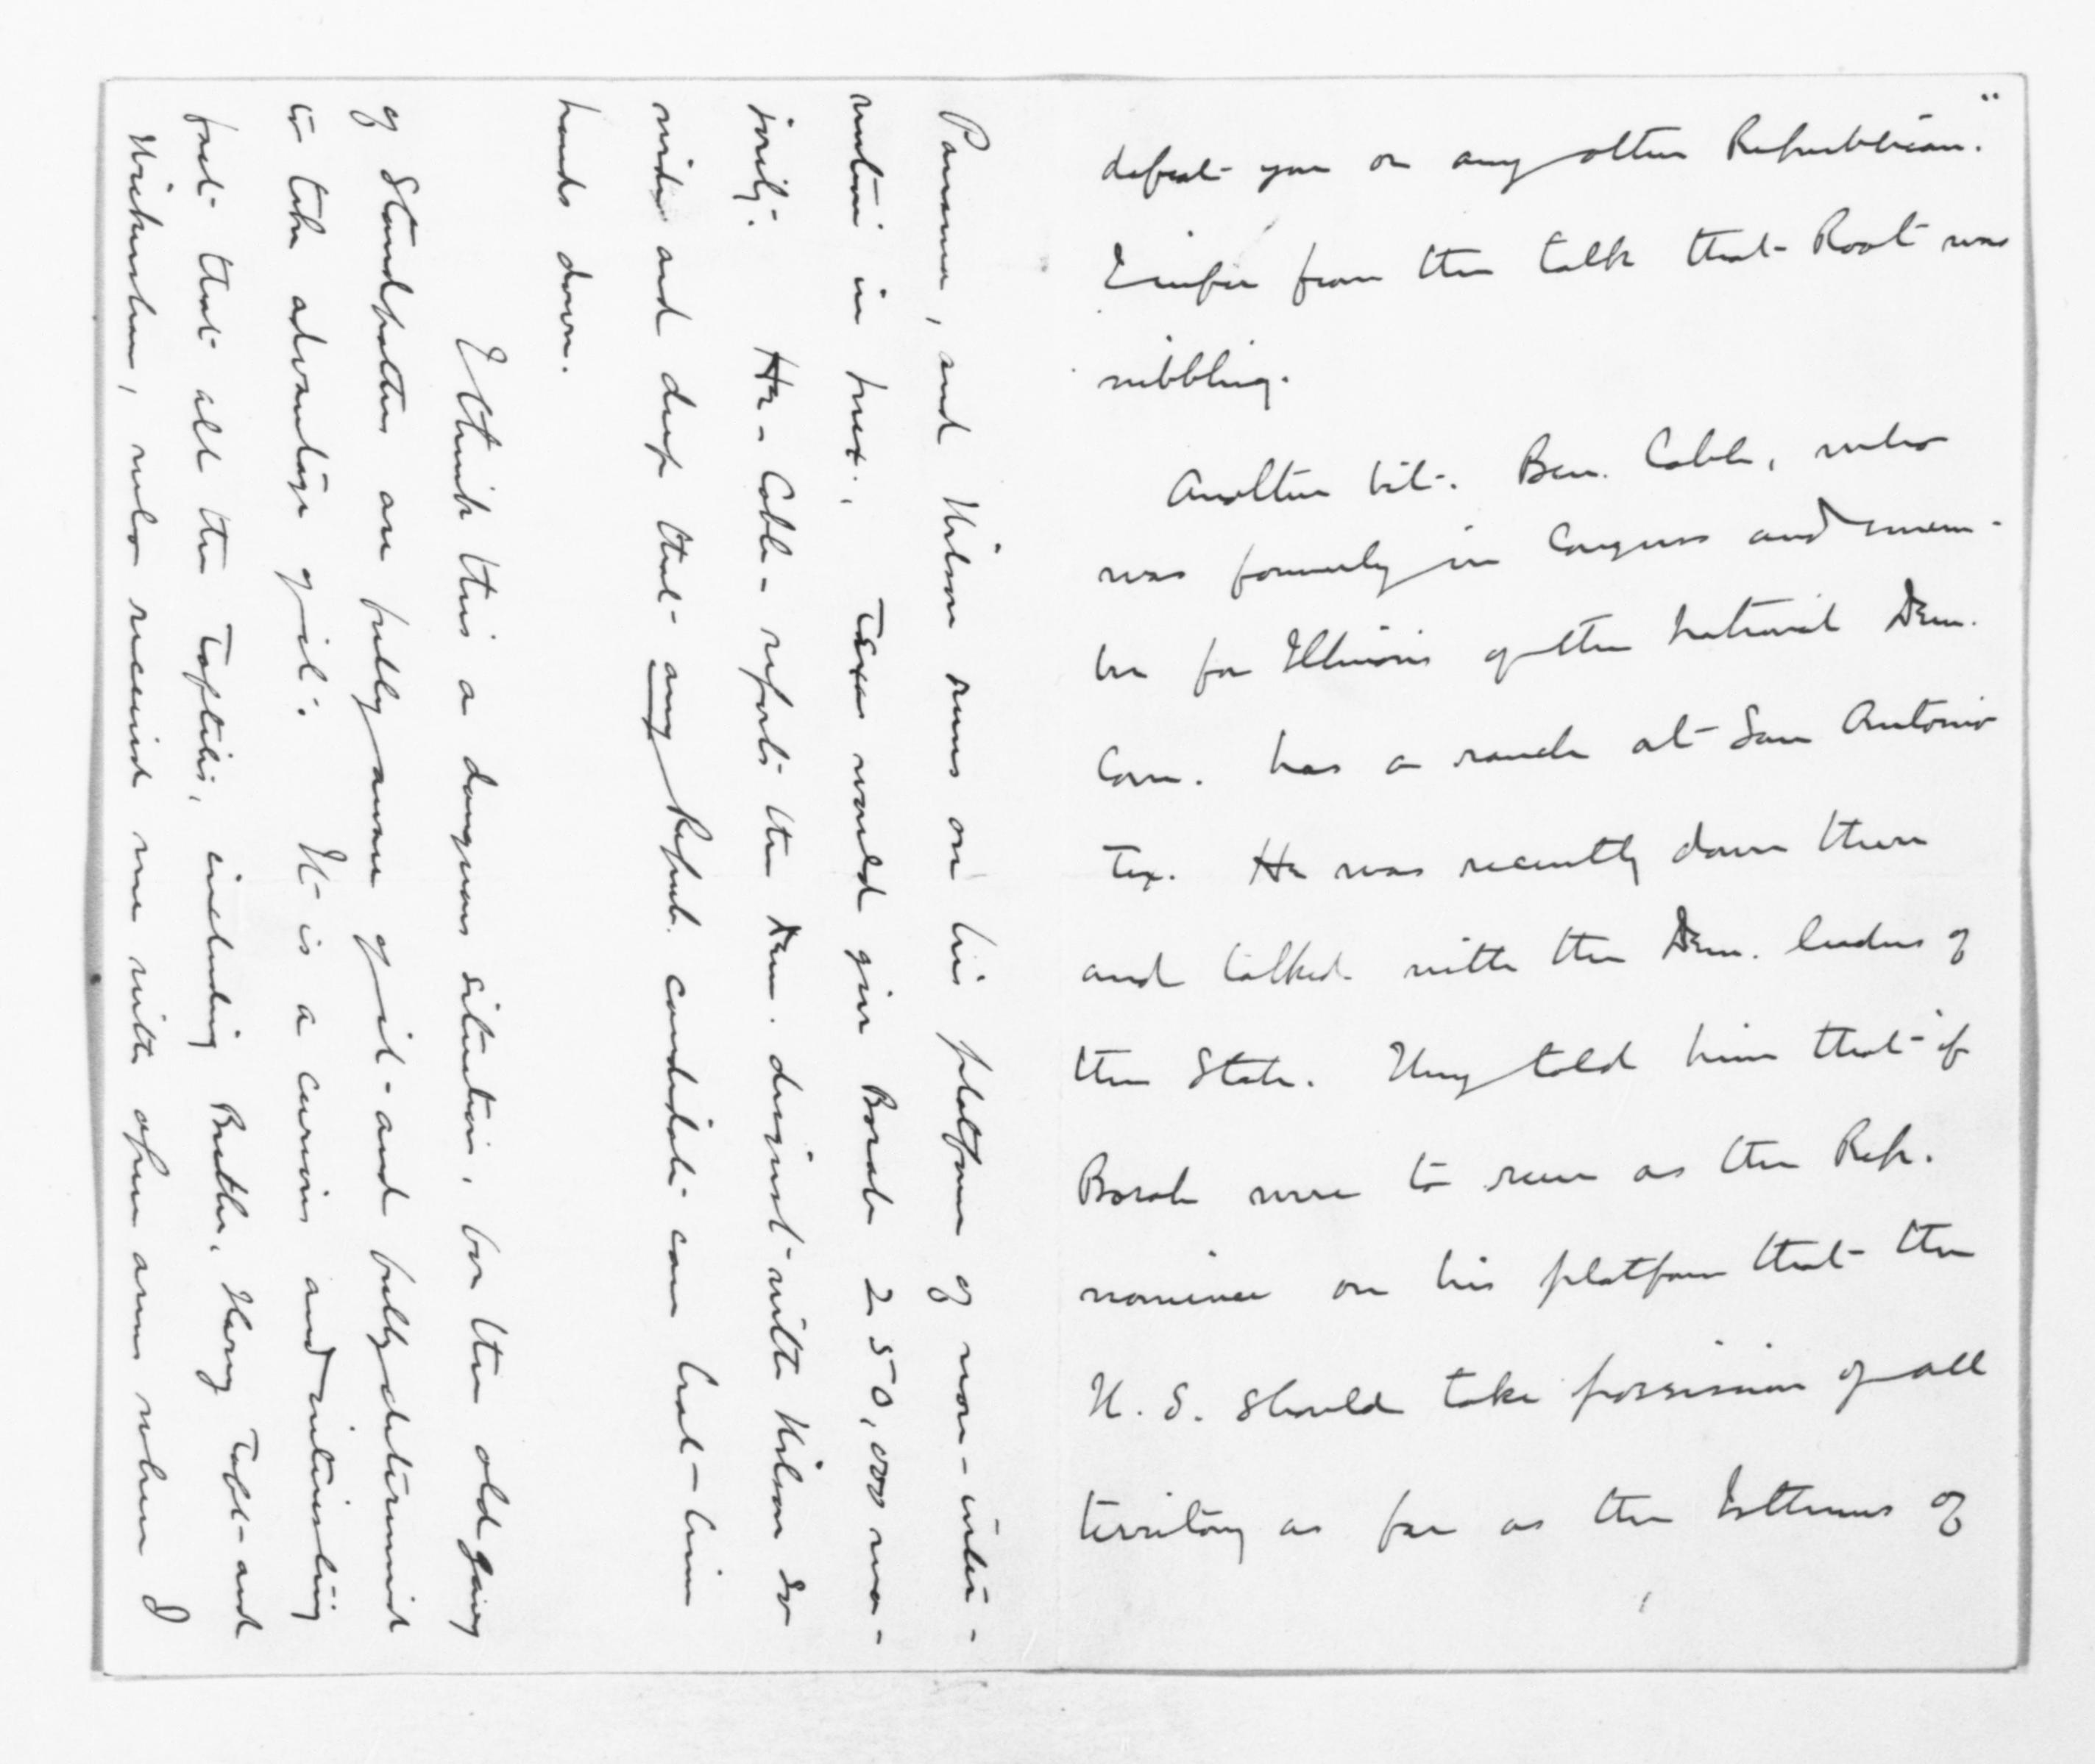 defeat you or any other Republican."
I infer from the talk that Root was
nibbling.
Another bit. Ben. Cable, who
was formerly in Congress and mem-
ber for Illinois of the National Dem.
Com. has a ranch at San Antonio
Tex. He was recently down there
and talked with the Dem. leaders of
the State. They told him that if
Borah were to run as the Rep.
nominee on his platform that the
U. S. should take possession of all
territory as far as the Isthmus of
Panama, and Wilson runs on his platform of non-inter-
vention in Mex., Texas would give Borah 250,000 ma-
jority. He - Cable - reports the Dem. disgust with Wilson so
wide and deep that any Repub. candidate can beat him
hands down.
I think this a dangerous situation, for the old gang
of Standpatters are fully aware of it and fully determined
to take advantage of it. It is a curious and interesting
fact that all the Taftites, including Butler, Henry Taft and
Wickersham, who received me with open arms when I